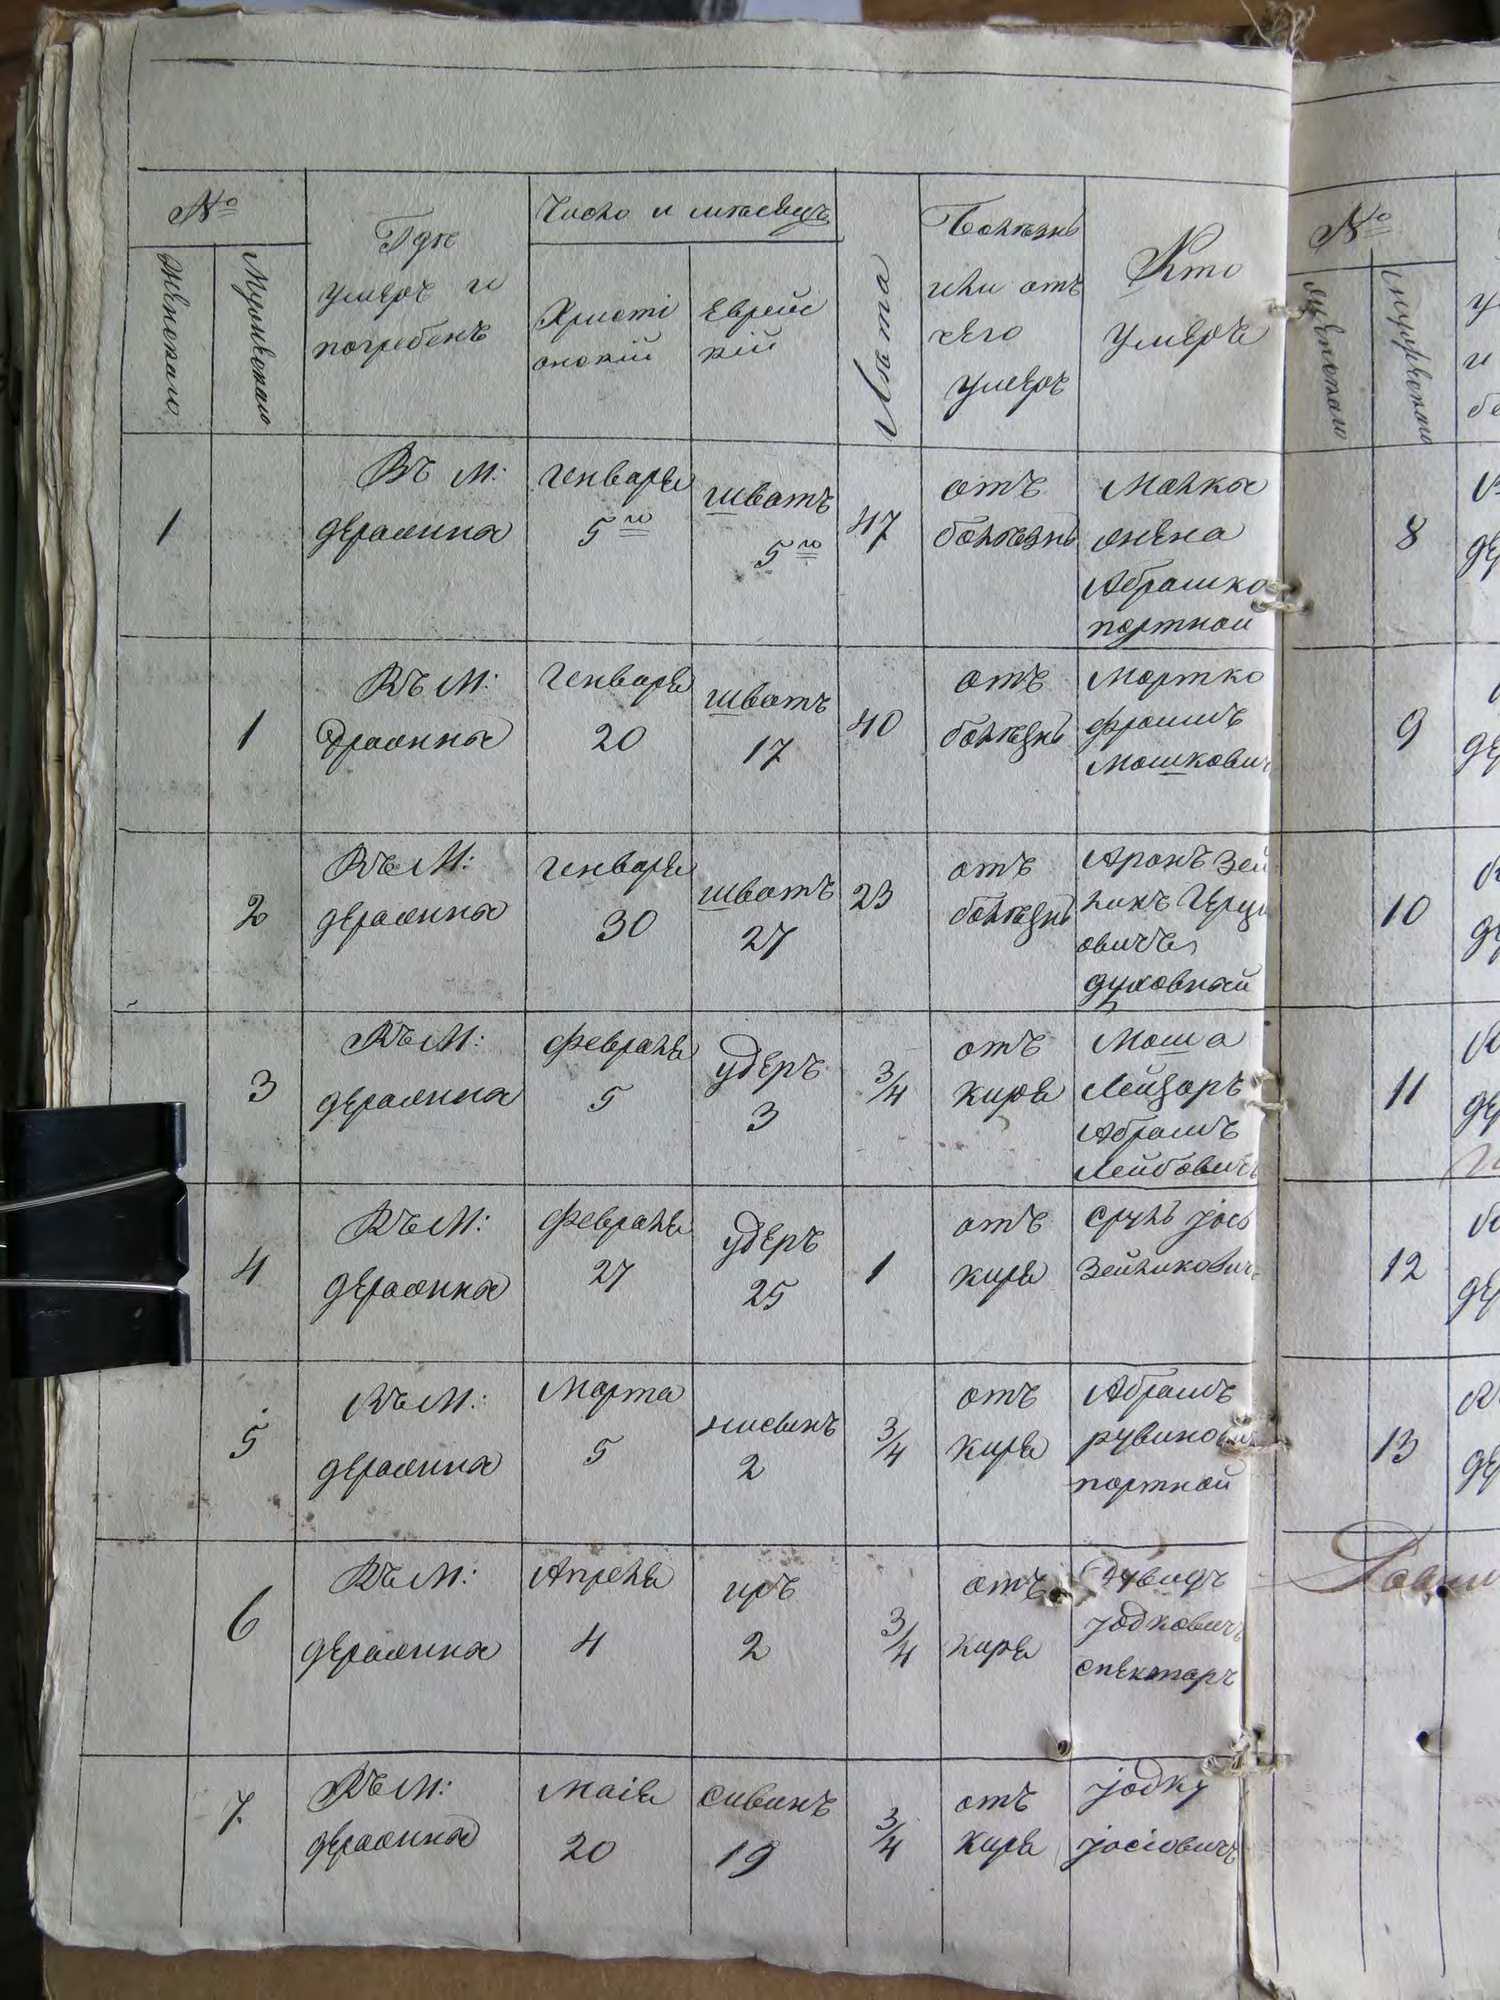 №
Женскаго
Мужескаго
Где
умеръ и
погребенъ
Число и месецъ
Христі
анскій
Еврей
скій
Лета
Болезнь
или отъ
чего
умеръ
Кто
умеръ
1
Въ М:
деражна
генваря
5го
шватъ
5го
47
отъ
болезнь
Малка
жена
Абрашко
портной
1
Въ М:
дражна
Генваря
20
шватъ
17
40
отъ
болезнь
Мортко
фроимъ
Мошкович
2
Въ М:
деражна
генваря
30
шватъ
27
23
отъ
болезнь
Аронъ Зей
ликъ Герш
овичъ
духовный
3
Въ М:
деражна
февраля
5
удеръ
3
3/4
отъ
киря
Моша
Лейзоръ
Абрамъ
Лейбовичъ
4
Въ М:
деражна
февраля
27
удеръ
25
1
отъ
киря
сруль
Зейликович
5
Въ М:
деражна
Марта
5
нисынъ
2
3/4
отъ
киря
Абрамъ
рувинович
портной
6
Въ М:
деражна
Апреля
4
иръ
2
3/4
отъ
киря
Дувидъ
јодковичъ
спекторъ
7
Въ М:
деражна
Маія
20
сивинъ
19
3/4
отъ
киря
јодку
јосіовичъ
№
8
9
10
11
12
13